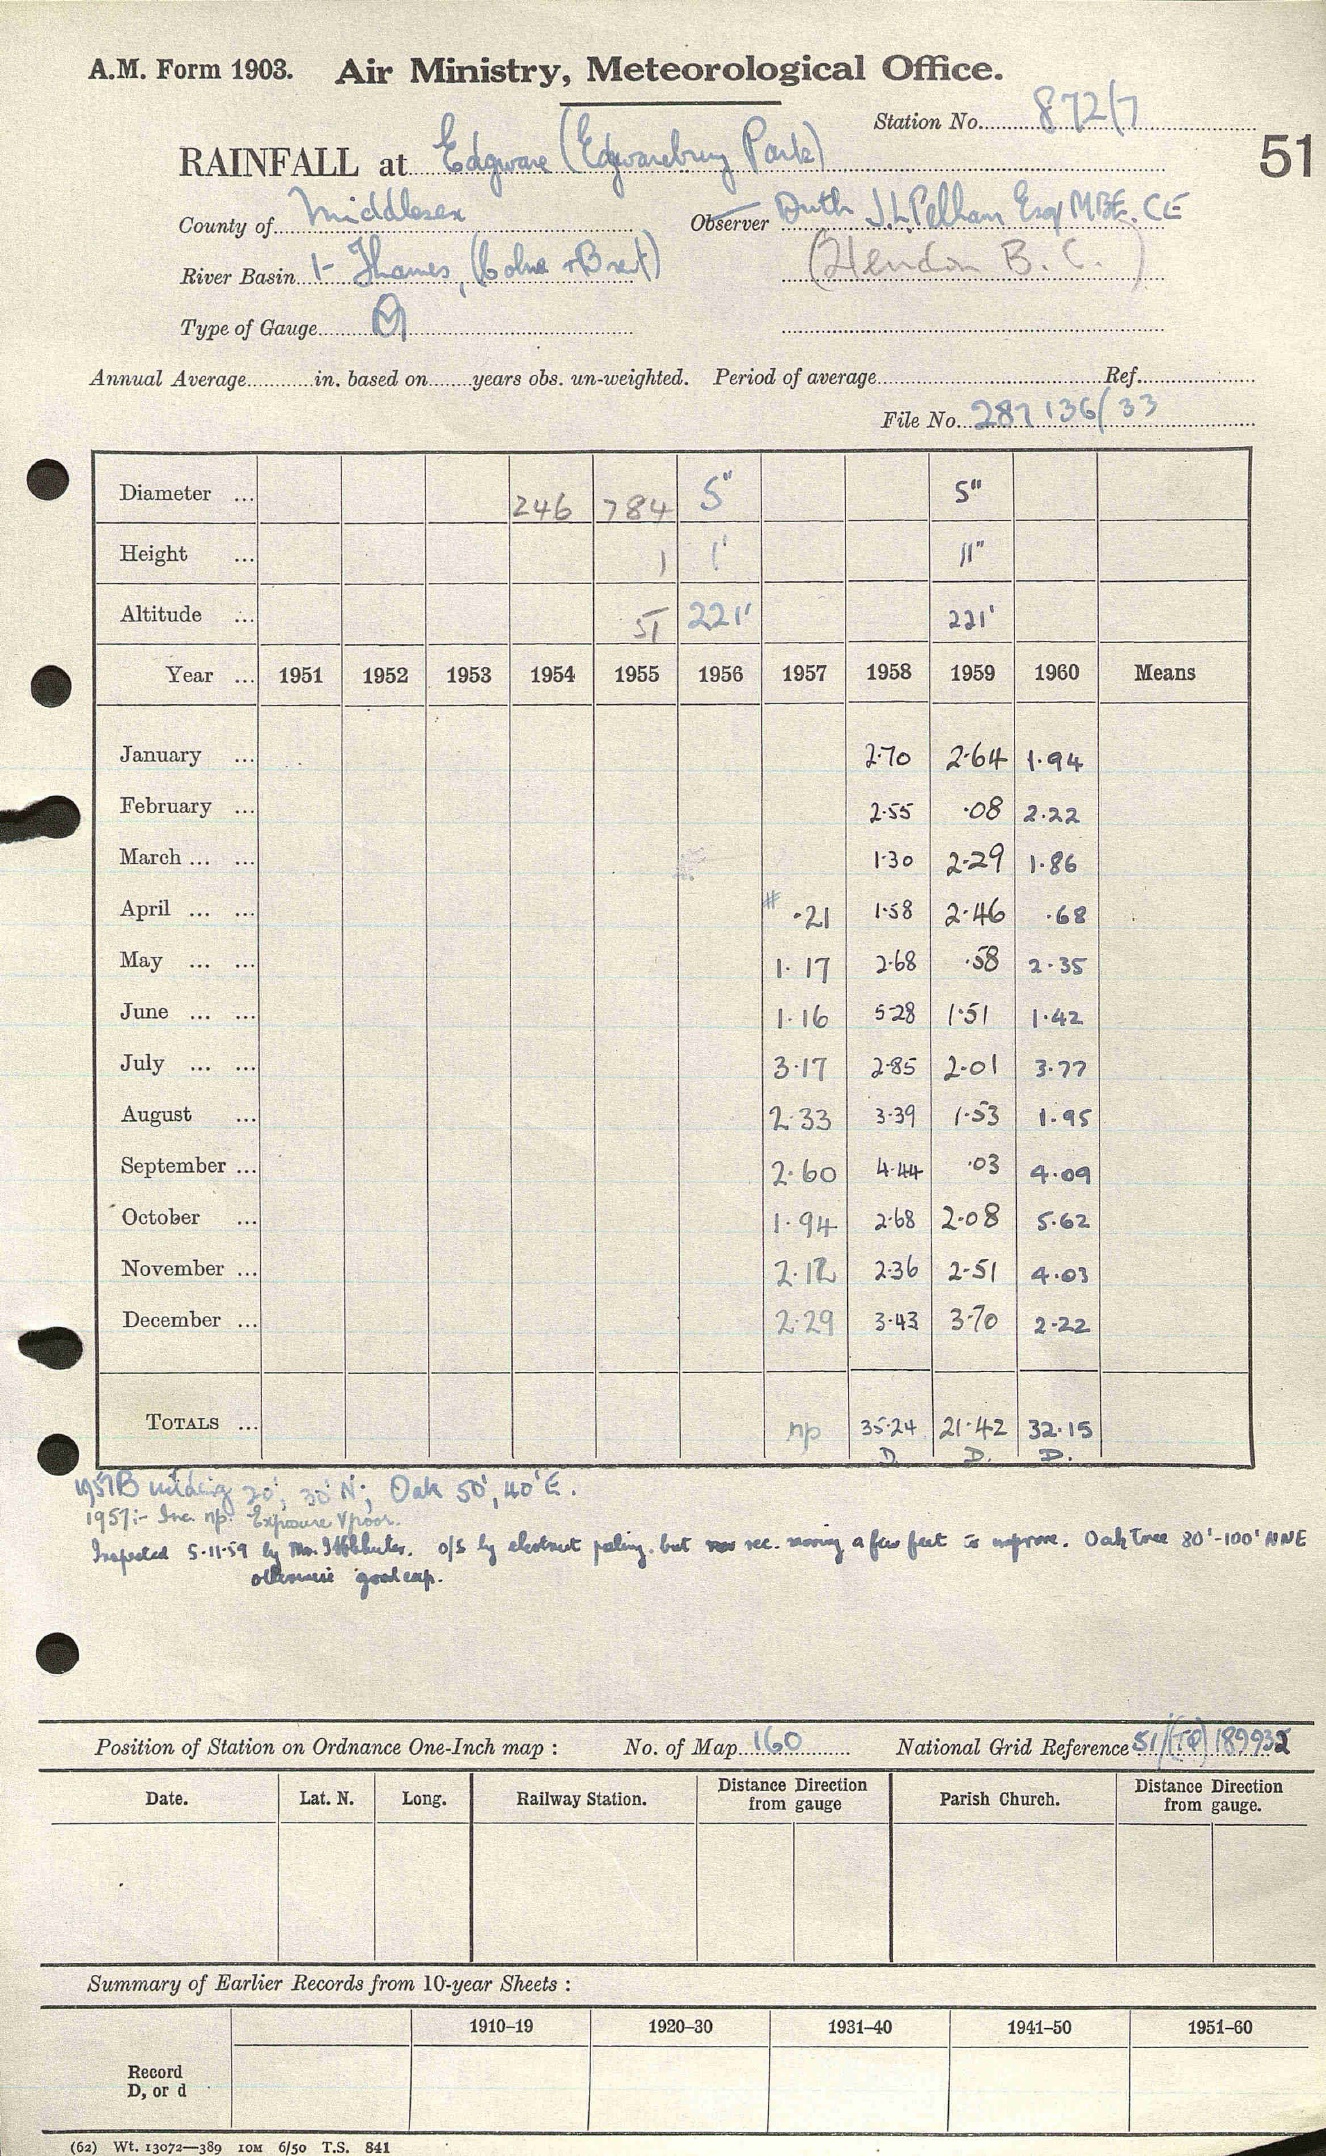 A.M. Form 1903. Air Ministry, Meteorological Office.
Station No. 872/7
51
RAINFALL at Edgware (Edgwarebury Park)
County of Middlesex Observer Auth J.L. Pelham Esq MBE. CE
River Basin 1- Thames, (Colne + Brent) (Hendon B.C.)
Type of Gauge M
Annual Average in. based on years obs. un-weighted. Period of average Ref.
File No. 287136/33
Diameter ... 246 784 5" 5"
Height ... 1 1' 11"
Altitude ... 51 221' 221'
Year ... 1951 1952 1953 1954 1955 1956 1957 1958 1959 1960 Means
January ... 2.70 2.64 1.94
February ... 2.55 .08 2.22
March ... ... 1.30 2.29 1.86
April ... ... # .21 1.58 2.46 .68
May ... ... 1.17 2.68 .58 2.35
June ... ... 1.16 5.28 1.51 1.42
July ... ... 3.17 2.85 2.01 3.77
August ... 2.33 3.39 1.53 1.95
September ... 2.60 4.44 .03 4.09
October ... 1.94 2.68 2.08 5.62
November ... 2.12 2.36 2.51 4.03
December ... 2.29 3.43 3.70 2.22
TOTALS ... np 35.24 21.42 32.15
D. D. D.
1957 Building 20', 30' N; Oak 50', 40' E.
1957:- Inc. np. Exposure V poor.
Inspected 5-11-59 by Mr. o/S by chestnut paling. but rec. moving a few feet to improve. Oak Tree 80'-100' NNE
otherwise good exp.
Position of Station on Ordnance One-Inch map : No. of Map 160 National Grid Reference 51/(TQ) 189932
Date. Lat. N. Long. Railway Station. Distance Direction from gauge Parish Church. Distance Direction from gauge.
Summary of Earlier Records from 10-year Sheets :
1910–19 1920–30 1931–40 1941–50 1951–60
Record
D, or d
(62) Wt. 13072—389 10M 6/50 T.S. 841